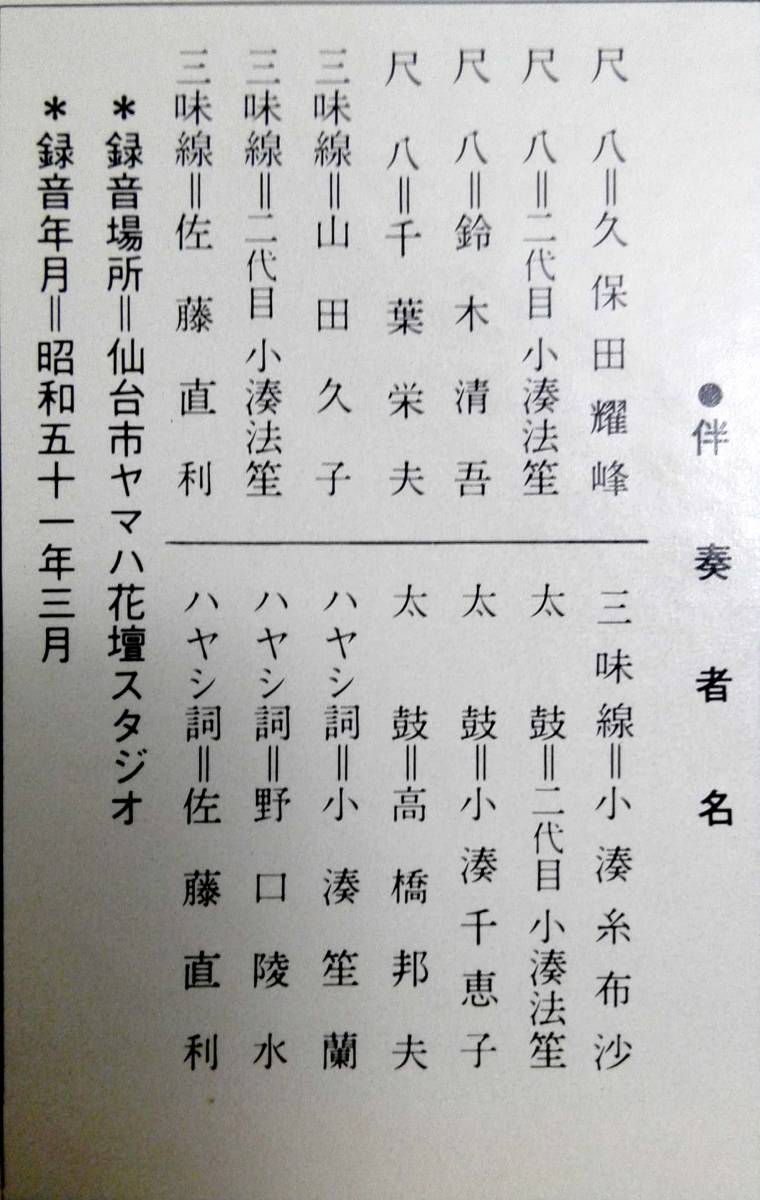 ●伴奏者名
尺八＝久保田耀峰
尺八＝二代目小湊法笙
尺八＝鈴木清吾
尺八＝千葉栄夫
三味線＝山田久子
三味線＝二代目小湊法笙
三味線＝佐藤直利
三味線＝小湊糸布沙
太鼓＝二代目小湊法笙
太鼓＝小湊千恵子
太鼓＝高橋邦夫
ハヤシ詞＝小湊笙蘭
ハヤシ詞＝野口陵水
ハヤシ詞＝佐藤直利
＊録音場所＝仙台市ヤマハ花壇スタジオ
＊録音年月＝昭和五十一年三月